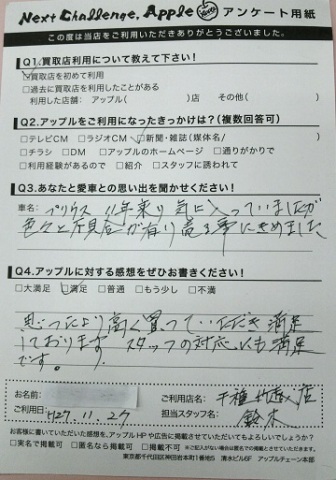 Next Challenge, Apple アンケート用紙
この度は当店をご利用いただきありがとうございました。
Q1.買取店利用について教えて下さい!
☑買取店を初めて利用
□過去に買取店を利用したことがある
利用した店舗: アップル( )店 その他( )
Q2.アップルをご利用になったきっかけは?(複数回答可)
□テレビCM □ラジオCM ☑新聞・雑誌(媒体名/ )
□チラシ □DM □アップルのホームページ □通りがかりで
□利用経験があるので □紹介 □スタッフに誘われて
Q3.あなたと愛車との思い出を聞かせください!
車名: プリウス 年乗り気に入っていましたが
色々と不具合が有り売る事にきめました
Q4.アップルに対する感想をぜひお書きください!
□大満足 ☑満足 □普通 □もう少し □不満
思ったより高く買っていただき満足
しております。スタッフの対応にも満足
です。
お名前:
ご利用日: H27.11.27
ご利用店名: 千種 店
担当スタッフ名: 鈴木
お客様に書いていただいた感想を、アップルHPや広告に掲載させていただいてもよろしいでしょうか?
□実名で掲載可 □匿名なら掲載可 □掲載不可
東京都千代田区神田岩本町1番地5 清水ビル6F アップルチェーン本部